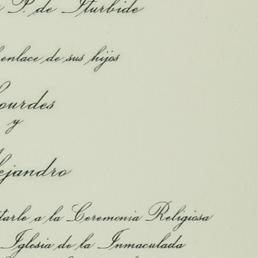 P. de Iturbide
enlace de sus hijos
Lourdes
y
Alejandro
a la Ceremonia Religiosa
Iglesia de la Inmaculada